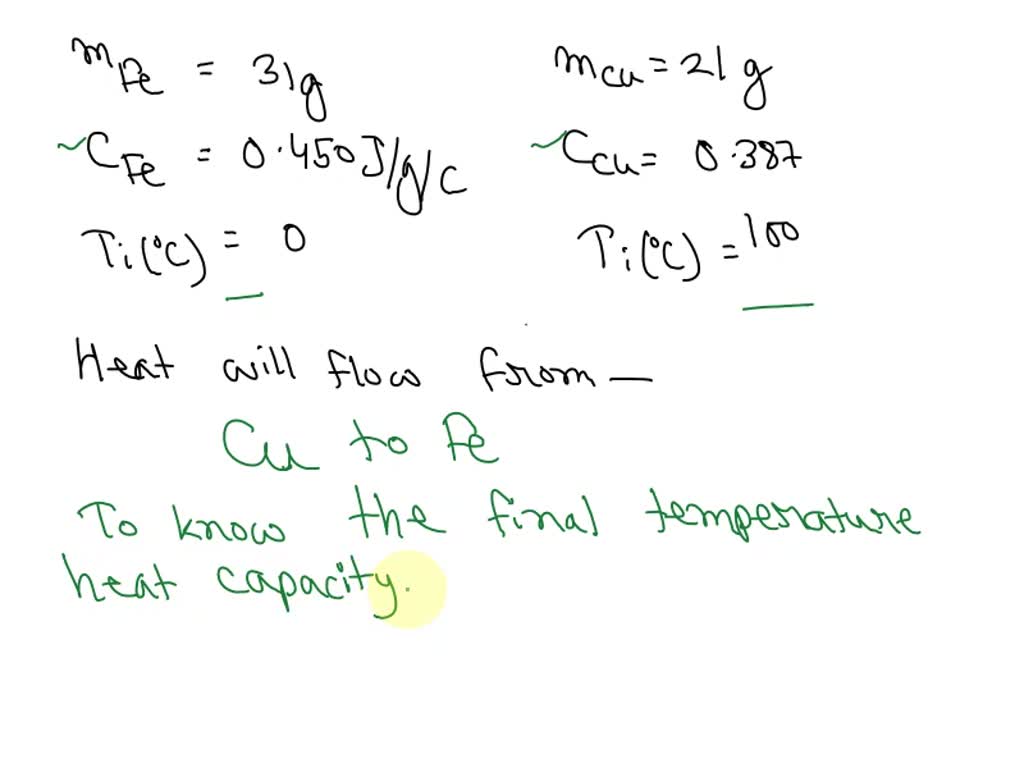 mFe = 31g
mcu = 21 g
~CFe = 0.450J/g/c
~Ccu = 0.387
Ti(°C) = 0
Ti(°C) = 100
Heat will flow from —
Cu to Fe
To know the final temperature
heat capacity.